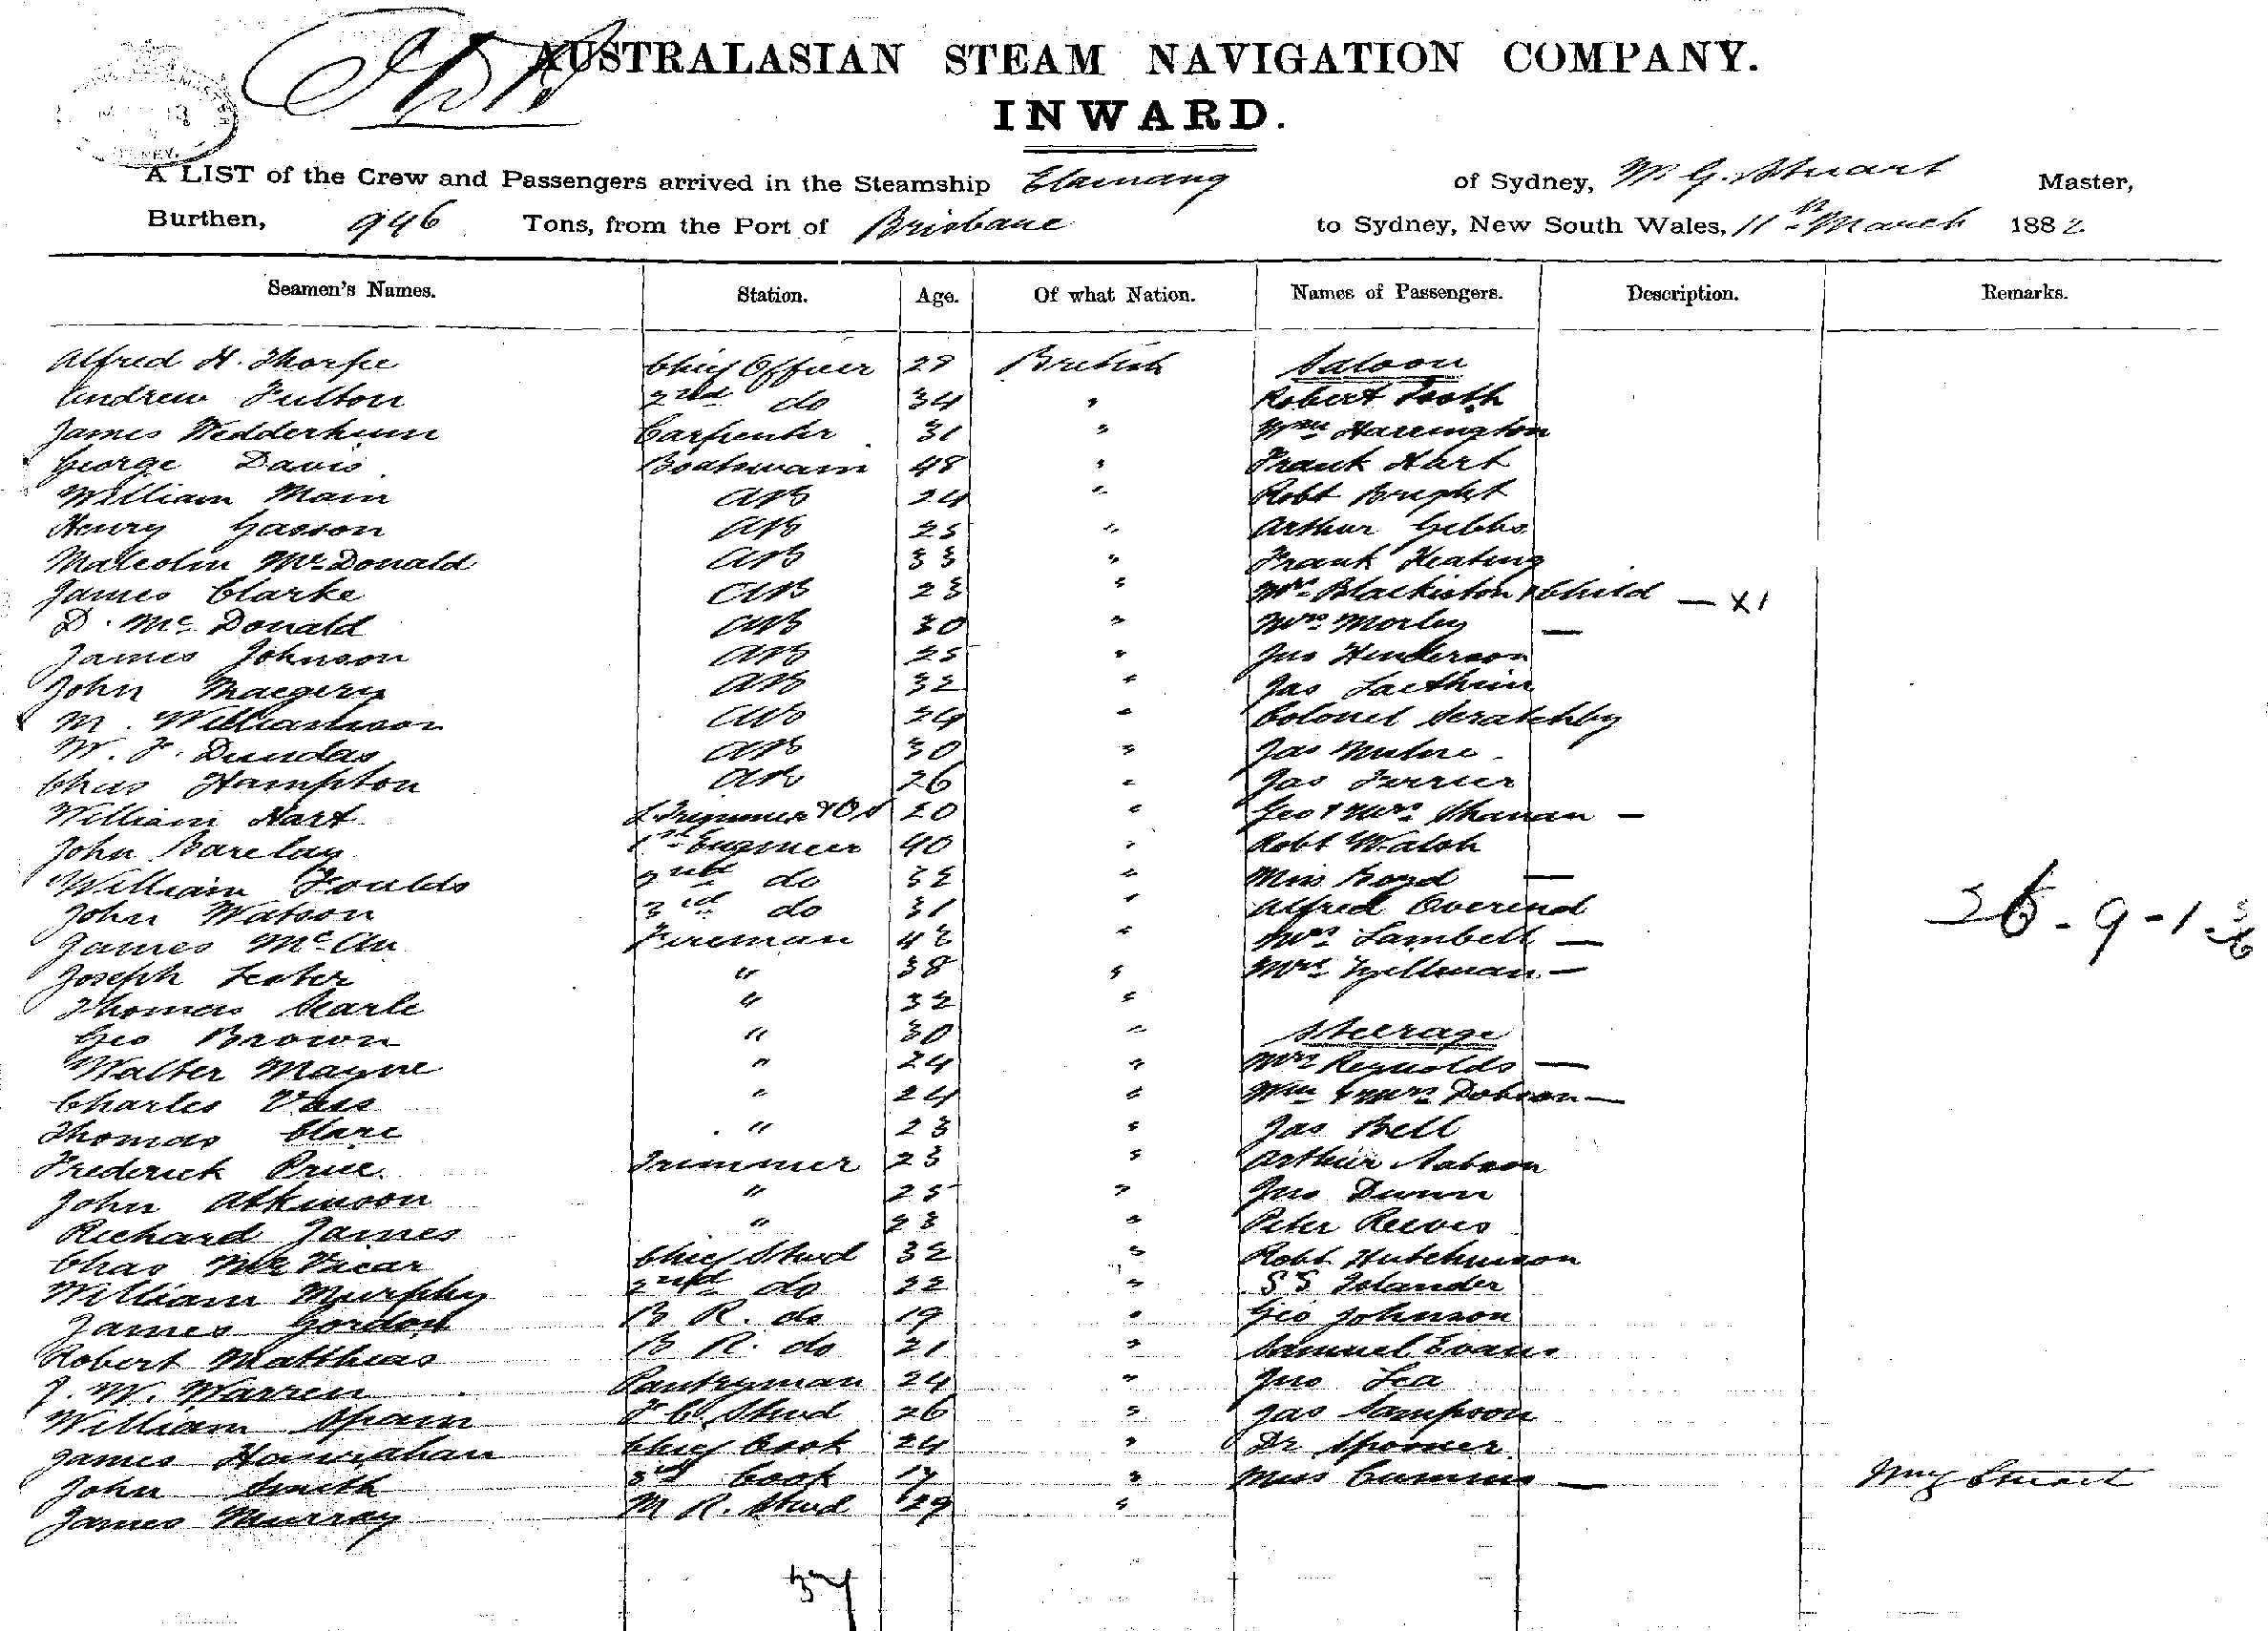 AUSTRALASIAN STEAM NAVIGATION COMPANY.
INWARD.
A LIST of the Crew and Passengers arrived in the Steamship Elamang of Sydney, W. G. Stuart Master,
Burthen, 946 Tons, from the Port of Brisbane to Sydney, New South Wales, 11th March 1882
Seamen's Names. Station. Age. Of what Nation. Names of Passengers. Description. Remarks.
Alfred H. Thorpe Chief Officer 28 British Saloon
Andrew Fulton 2nd do 34 " Robert Tooth
James Wedderburn Carpenter 31 " Wm Harrington
George Davis Boatswain 48 " Frank Hart
William Main AB 24 " Robt Bright
Henry Gasson AB 25 " Arthur Gibbs
Malcolm McDonald AB 33 " Frank Keating
James Clarke AB 23 " Mrs Blackiston & Child — x1
D. McDonald AB 30 " Mrs Morley —
James Johnson AB 25 " Jno Henderson
John AB 32 " Jas
M. Williamson AB 24 " Colonel Scratchley
W. F. Dundas AB 30 " Jas
Chas Hampton AB 26 " Jas Ferrier
William Hart L. Trimmer & OS 20 " Geo & Mrs Shanan —
John Barclay 1st Engineer 40 " Robt Walsh
William Foulds 2nd do 32 " Miss Boyd —
John Watson 3rd do 31 " Alfred Overend
James Fireman 42 " Mrs Lambell —
Joseph Lester " 38 " Mrs —
Thomas Searle " 32 "
Geo Brown " 30 " Steerage
Walter Mayne " 24 " Mrs Reynolds —
Charles Vass " 24 " Wm & Mrs Dobson —
Thomas Clare " 23 " Jas Bell
Frederick Price Trimmer 23 " Arthur
John Atkinson " 25 " Jno Dunn
Richard James " 23 " Peter Reeves
Chas McVicar Chief Stwd 32 " Robt Hutchinson
William Murphy 2nd do 22 " S S Islander
James Gordon B. R. do 19 " Geo Johnson
Robert Matthias B. R. do 21 " Samuel Evans
J. W. Warren Pantryman 24 " Jno Lea
William Spain F C. Stwd 26 " Jas Sampson
James Hanrahan Chief Cook 24 " Dr Spooner
John Smith 2nd Cook 17 " Miss Cummins —
James Murray M R. Stwd 29 "
Wm G Stuart
37